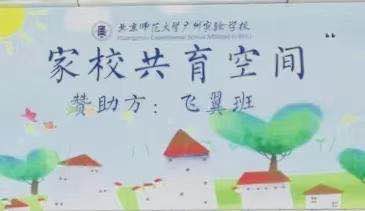 北京师范大学广州实验学校
Guangzhou Experimental School Affiliated to BNU
家校共育空间”
赞助方：飞翼班